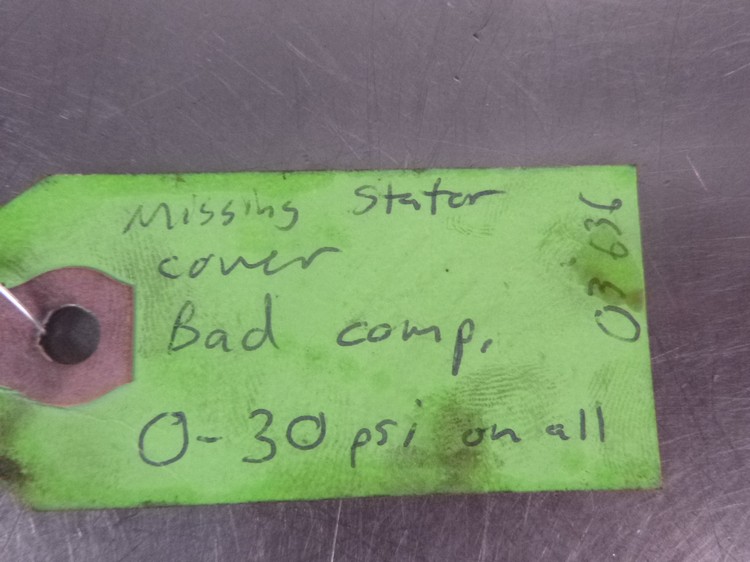 Missing Stator
cover
Bad comp.
0-30 psi on all
03 636